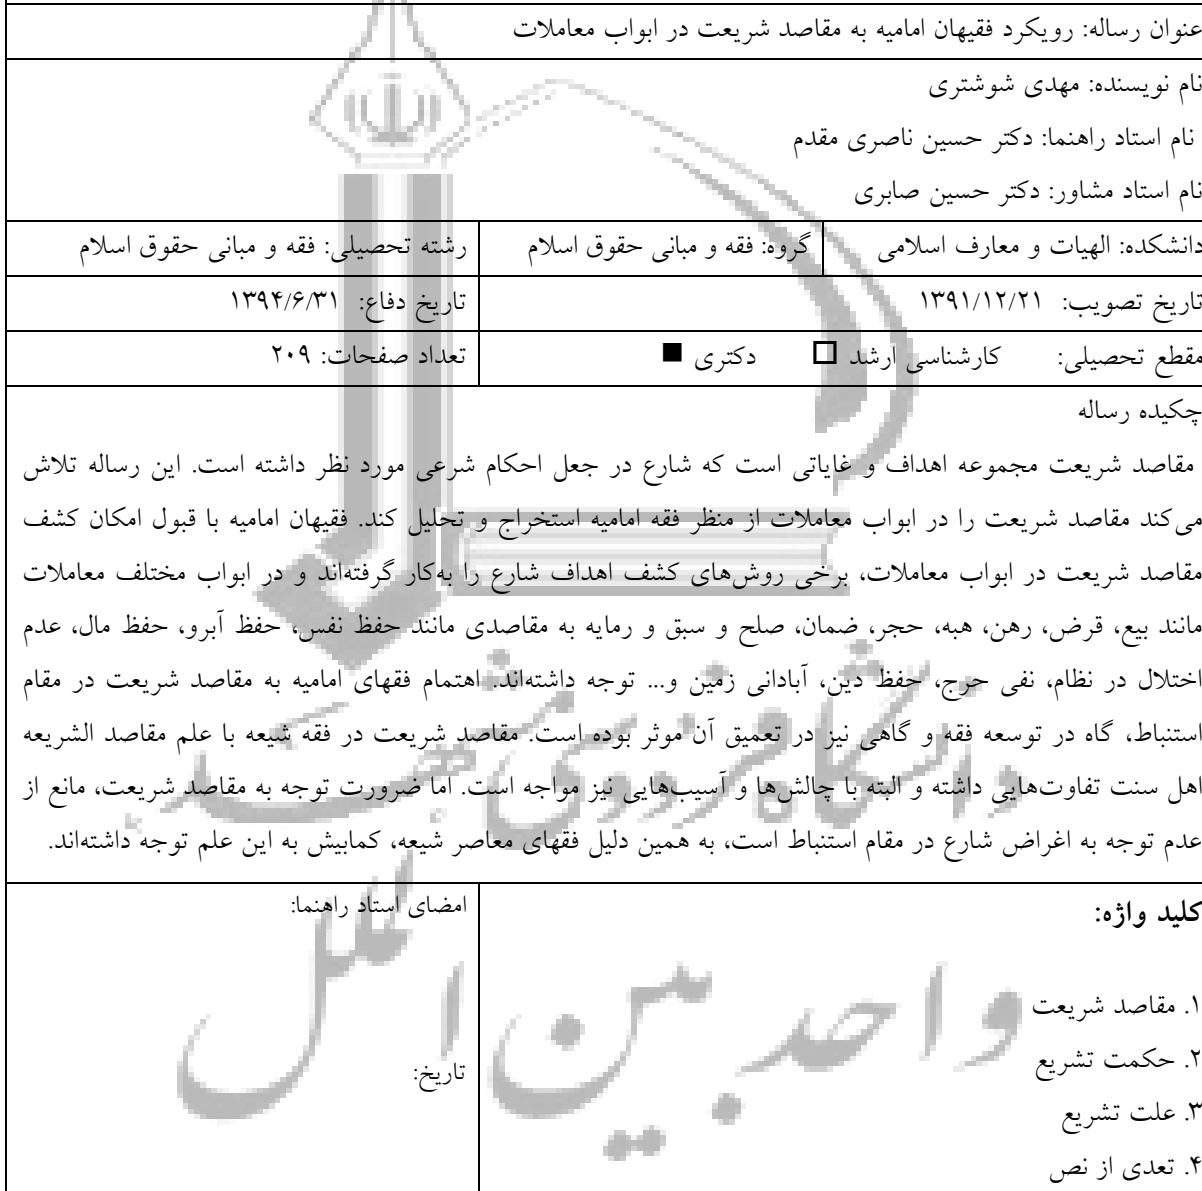 عنوان رساله: رویکرد فقیهان امامیه به مقاصد شریعت در ابواب معاملات
نام نویسنده: مهدی شوشتری
نام استاد راهنما: دکتر حسین ناصری مقدم
نام استاد مشاور: دکتر حسین صابری
دانشکده: الهیات و معارف اسلامی گروه: فقه و مبانی حقوق اسلام رشته تحصیلی: فقه و مبانی حقوق اسلام
تاریخ تصویب: ۱۳۹۱/۱۲/۲۱ تاریخ دفاع: ۱۳۹۴/۶/۳۱
مقطع تحصیلی: کارشناسی ارشد □ دکتری ■ تعداد صفحات: ۲۰۹
چکیده رساله
مقاصد شریعت مجموعه اهداف و غایاتی است که شارع در جعل احکام شرعی مورد نظر داشته است. این رساله تلاش
می‌کند مقاصد شریعت را در ابواب معاملات از منظر فقه امامیه استخراج و تحلیل کند. فقیهان امامیه با قبول امکان کشف
مقاصد شریعت در ابواب معاملات، برخی روش‌های کشف اهداف شارع را به‌کار گرفته‌اند و در ابواب مختلف معاملات
مانند بیع، قرض، رهن، هبه، حجر، ضمان، صلح و سبق و رمایه به مقاصدی مانند حفظ نفس، حفظ آبرو، حفظ مال، عدم
اختلال در نظام، نفی حرج، حفظ دین، آبادانی زمین و... توجه داشته‌اند. اهتمام فقهای امامیه به مقاصد شریعت در مقام
استنباط، گاه در توسعه فقه و گاهی نیز در تعمیق آن موثر بوده است. مقاصد شریعت در فقه شیعه با علم مقاصد الشریعه
اهل سنت تفاوت‌هایی داشته و البته با چالش‌ها و آسیب‌هایی نیز مواجه است. اما ضرورت توجه به مقاصد شریعت، مانع از
عدم توجه به اغراض شارع در مقام استنباط است، به همین دلیل فقهای معاصر شیعه، کمابیش به این علم توجه داشته‌اند.
کلید واژه: امضای استاد راهنما:
۱. مقاصد شریعت
۲. حکمت تشریع تاریخ:
۳. علت تشریع
۴. تعدی از نص
دانشگاه فردوسی مشهد
واحد بین الملل